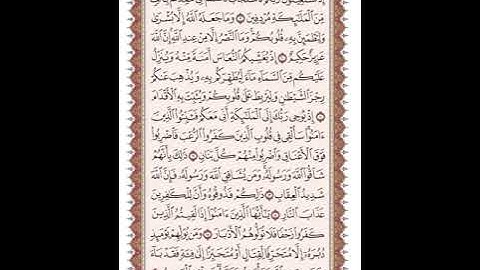 مِنَ ٱلْمَلَٰٓئِكَةِ مُرْدِفِينَ ۝ وَمَا جَعَلَهُ ٱللَّهُ إِلَّا بُشْرَىٰ
وَلِتَطْمَئِنَّ بِهِۦ قُلُوبُكُمْ ۚ وَمَا ٱلنَّصْرُ إِلَّا مِنْ عِندِ ٱللَّهِ ۚ إِنَّ ٱللَّهَ
عَزِيزٌ حَكِيمٌ ۝ إِذْ يُغَشِّيكُمُ ٱلنُّعَاسَ أَمَنَةً مِّنْهُ وَيُنَزِّلُ
عَلَيْكُم مِّنَ ٱلسَّمَآءِ مَآءً لِّيُطَهِّرَكُم بِهِۦ وَيُذْهِبَ عَنكُمْ
رِجْزَ ٱلشَّيْطَٰنِ وَلِيَرْبِطَ عَلَىٰ قُلُوبِكُمْ وَيُثَبِّتَ بِهِ ٱلْأَقْدَامَ
۝ إِذْ يُوحِى رَبُّكَ إِلَى ٱلْمَلَٰٓئِكَةِ أَنِّى مَعَكُمْ فَثَبِّتُوا۟ ٱلَّذِينَ
ءَامَنُوا۟ ۚ سَأُلْقِى فِى قُلُوبِ ٱلَّذِينَ كَفَرُوا۟ ٱلرُّعْبَ فَٱضْرِبُوا۟
فَوْقَ ٱلْأَعْنَاقِ وَٱضْرِبُوا۟ مِنْهُمْ كُلَّ بَنَانٍ ۝ ذَٰلِكَ بِأَنَّهُمْ
شَآقُّوا۟ ٱللَّهَ وَرَسُولَهُۥ ۚ وَمَن يُشَاقِقِ ٱللَّهَ وَرَسُولَهُۥ فَإِنَّ ٱللَّهَ
شَدِيدُ ٱلْعِقَابِ ۝ ذَٰلِكُمْ فَذُوقُوهُ وَأَنَّ لِلْكَٰفِرِينَ
عَذَابَ ٱلنَّارِ ۝ يَٰٓأَيُّهَا ٱلَّذِينَ ءَامَنُوٓا۟ إِذَا لَقِيتُمُ ٱلَّذِينَ
كَفَرُوا۟ زَحْفًا فَلَا تُوَلُّوهُمُ ٱلْأَدْبَارَ ۝ وَمَن يُوَلِّهِمْ يَوْمَئِذٍ
دُبُرَهُۥٓ إِلَّا مُتَحَرِّفًا لِّقِتَالٍ أَوْ مُتَحَيِّزًا إِلَىٰ فِئَةٍ فَقَدْ بَآءَ